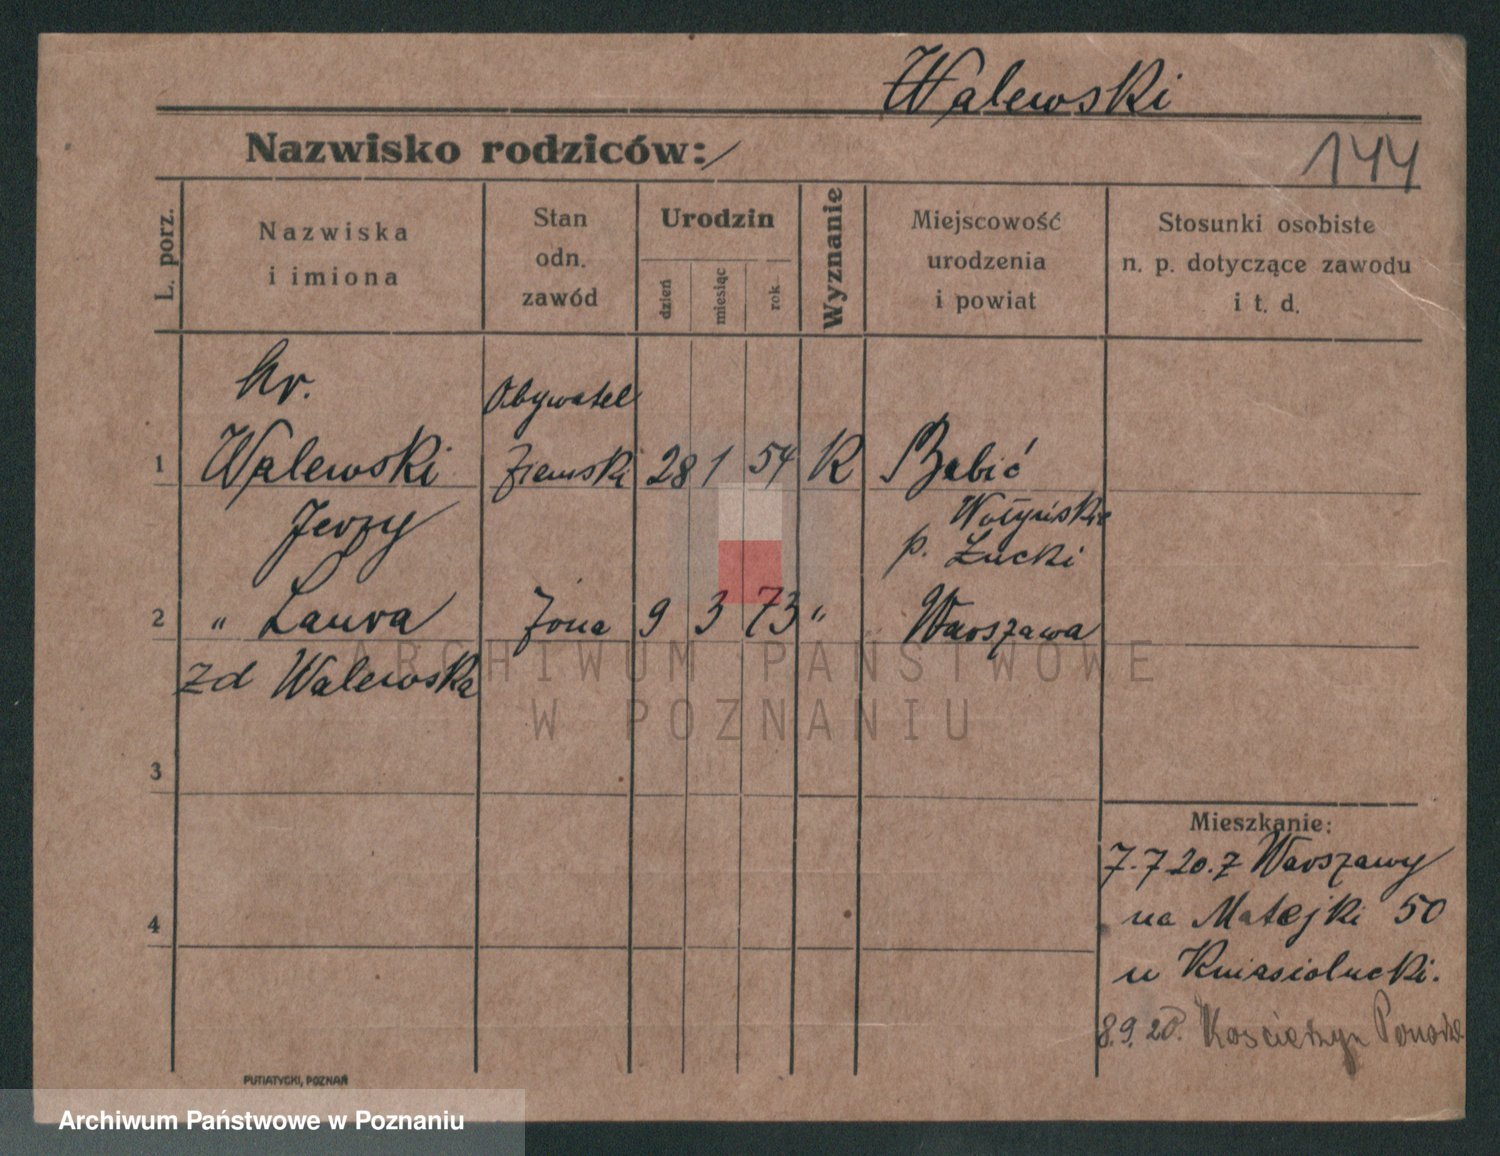 Walewski
Nazwisko rodziców:
144
L. porz.
Nazwiska
i imiona
Stan
odn.
zawód
Urodzin
dzień
miesiąc
rok
Wyznanie
Miejscowość
urodzenia
i powiat
Stosunki osobiste
n. p. dotyczące zawodu
i t. d.
hr.
Obywatel
1 Walewski Ziemski 28 1 54 K Babić
Jerzy Wołyńskie
p. Łucki
2 " Laura Żona 9 3 73 " Warszawa
zd Walewska
ARCHIWUM PAŃSTWOWE
W POZNANIU
3
Mieszkanie:
7.7 20. z Warszawy
4 na Matejki 50
u Kniasiolucki.
8.9.20. Kościerzyn
PUTIATYCKI, POZNAŃ
Archiwum Państwowe w Poznaniu